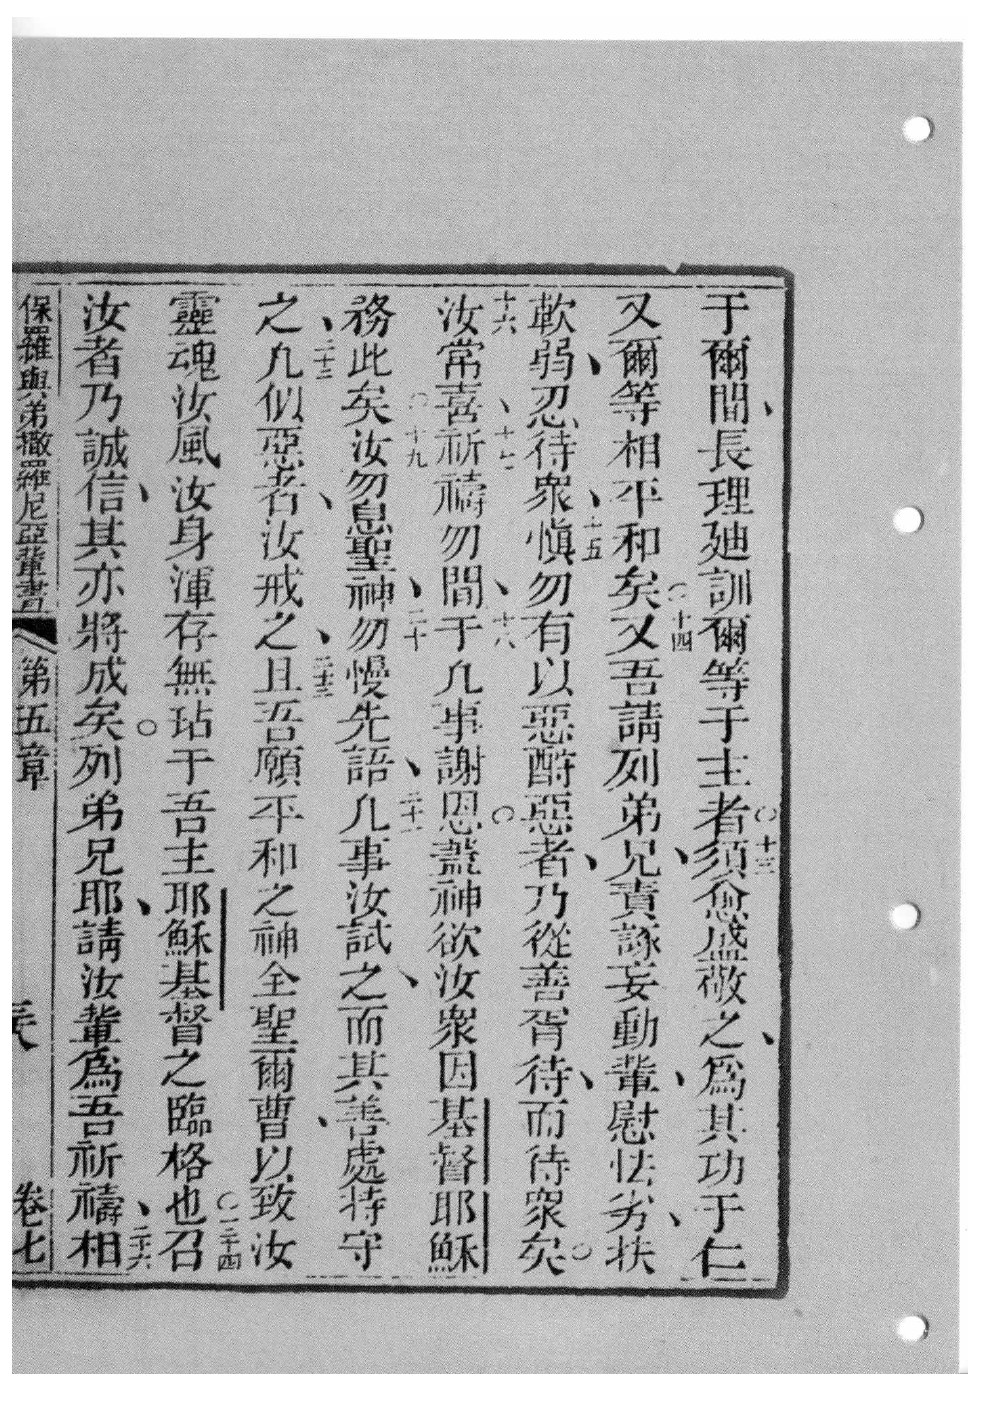 于爾間、長理廸訓爾等于主者。十三須愈盛敬之、爲其功于仁
又爾等相平和矣。十四又吾請列弟兄、責諑妄動輩、慰怯劣、扶
軟弱、忍待衆、十五愼勿有以惡酧惡者、乃從善胥待、而待衆矣。
十六汝常喜、十七祈禱勿間、十八于凢事謝恩。葢神欲汝衆因基督耶穌
務此矣。十九汝勿息聖神、二十勿慢先語、二十一凢事汝試之、而其善處持守
之、二十二凢似惡者、汝戒之、二十三且吾願平和之神全聖爾曹、以致汝
靈魂汝風汝身渾存無玷于吾主耶穌基督之臨格也。二十四召
汝者乃誠信、其亦將成矣。列弟兄耶、請汝輩爲吾祈禱、二十六相
保羅與弟撒羅尼亞輩書 第五章 卷七